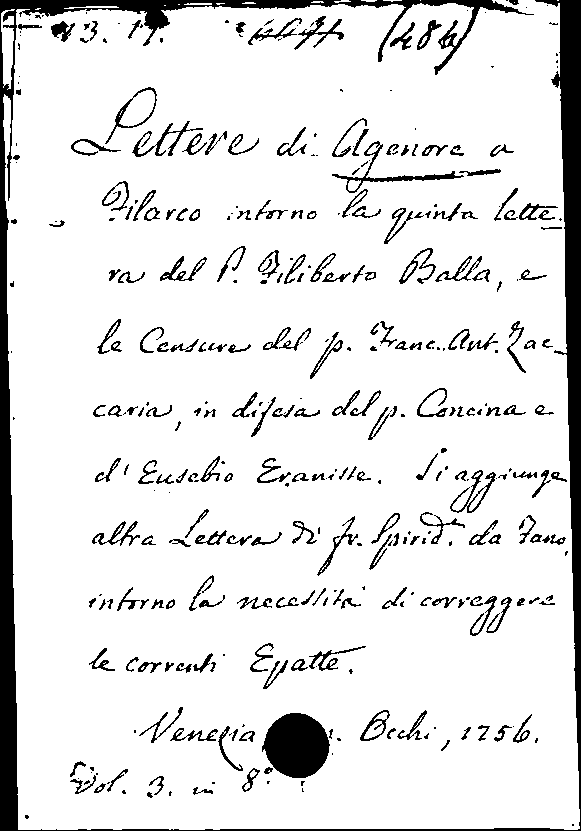 13. 17. (486)
Lettere di Agenore a
Filarco intorno la quinta lette-
ra del P. Filiberto Balla, e
le Censure del p. Franc. Ant. Zac-
caria, in difesa del p. Concina e
d' Eusebio Eraniste. Si aggiunge
altra Lettera di fr. Spirid.e da Fano,
intorno la necessità di correggere
le correnti Epatte.
Venezia, Occhi, 1756.
Vol. 3. in 8.°